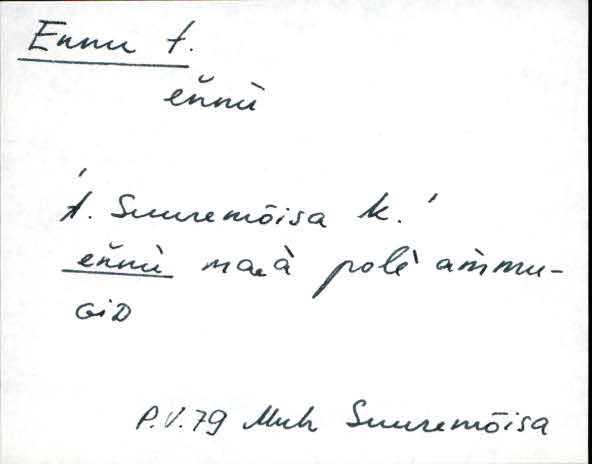 Ennu t.
eňnù
't. Suuremõisa k.'
eňnù maa polè am̀mu-
GiD
P.V.79 Muh Suuremõisa